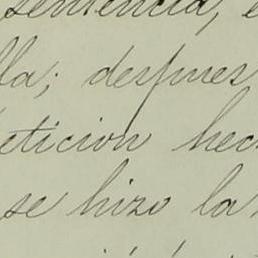 sentencia, e
lla; despues
eticion hec
se hizo la